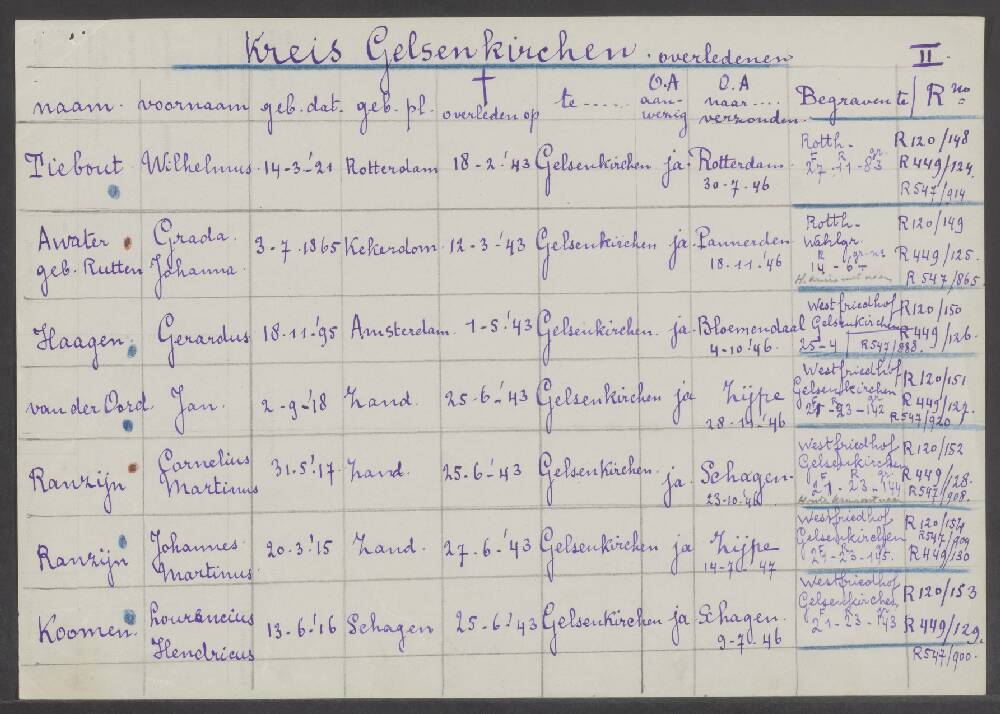 Kreis Gelsenkirchen. overledenen II.
naam. voornaam geb. dat. geb. pl. † overleden op te ...... O.A aan-wezig O.A. naar .... verzonden. Begraven te / R no
Tiebout Wilhelmus 14-3-'21 Rotterdam 18-2-'43 Gelsenkirchen ja Rotterdam.
30-7-'46
Rotth-
F R gr
27-11-83
R120/148
R449/124.
R547/914
Awater
geb. Rutten
Grada.
Johanna.
3-7-1865 Kekerdom 12-3-'43 Gelsenkirchen ja. Pannerden.
18-11-'46
Rotth-
Wahlgr.
R gr nr
14-6-
R120/149
R449/125.
R547/865
Haagen. Gerardus 18-11-'95 Amsterdam. 1-5-'43 Gelsenkirchen. ja. Bloemendaal
4-10-'46.
Westfriedhof
Gelsenkirchen
25-4
R120/150
R449/126.
R547/888.
van der Oord. Jan. 2-9-'18 Zand. 25-6-'43 Gelsenkirchen ja Zijpe
Westfriedhof
Gelsenkirchen
F R gr
21-23-142
R120/151
R449/127.
R547/920
Ranzijn Cornelius
Martinus
31-5-'17. Zand. 25-6-'43 Gelsenkirchen. ja. Schagen.
23-10-'46
Westfriedhof
Gelsenkirchen
F R gr
21-23-144
R120/152
R449/128.
R547/908.
Ranzijn Johannes
Martinus
20-3-'15 Zand. 27-6-'43 Gelsenkirchen ja Zijpe
14-7-'47
Westfriedhof
Gelsenkirchen
F R gr
21-23-145.
R120/154
R547/909
R449/130
Koomen.
Hendricus
13-6-'16 Schagen 25-6-'43 Gelsenkirchen ja Schagen.
9-7-'46
Westfriedhof
Gelsenkirchen
F R gr
21-23-143
R120/153
R449/129.
R547/900.